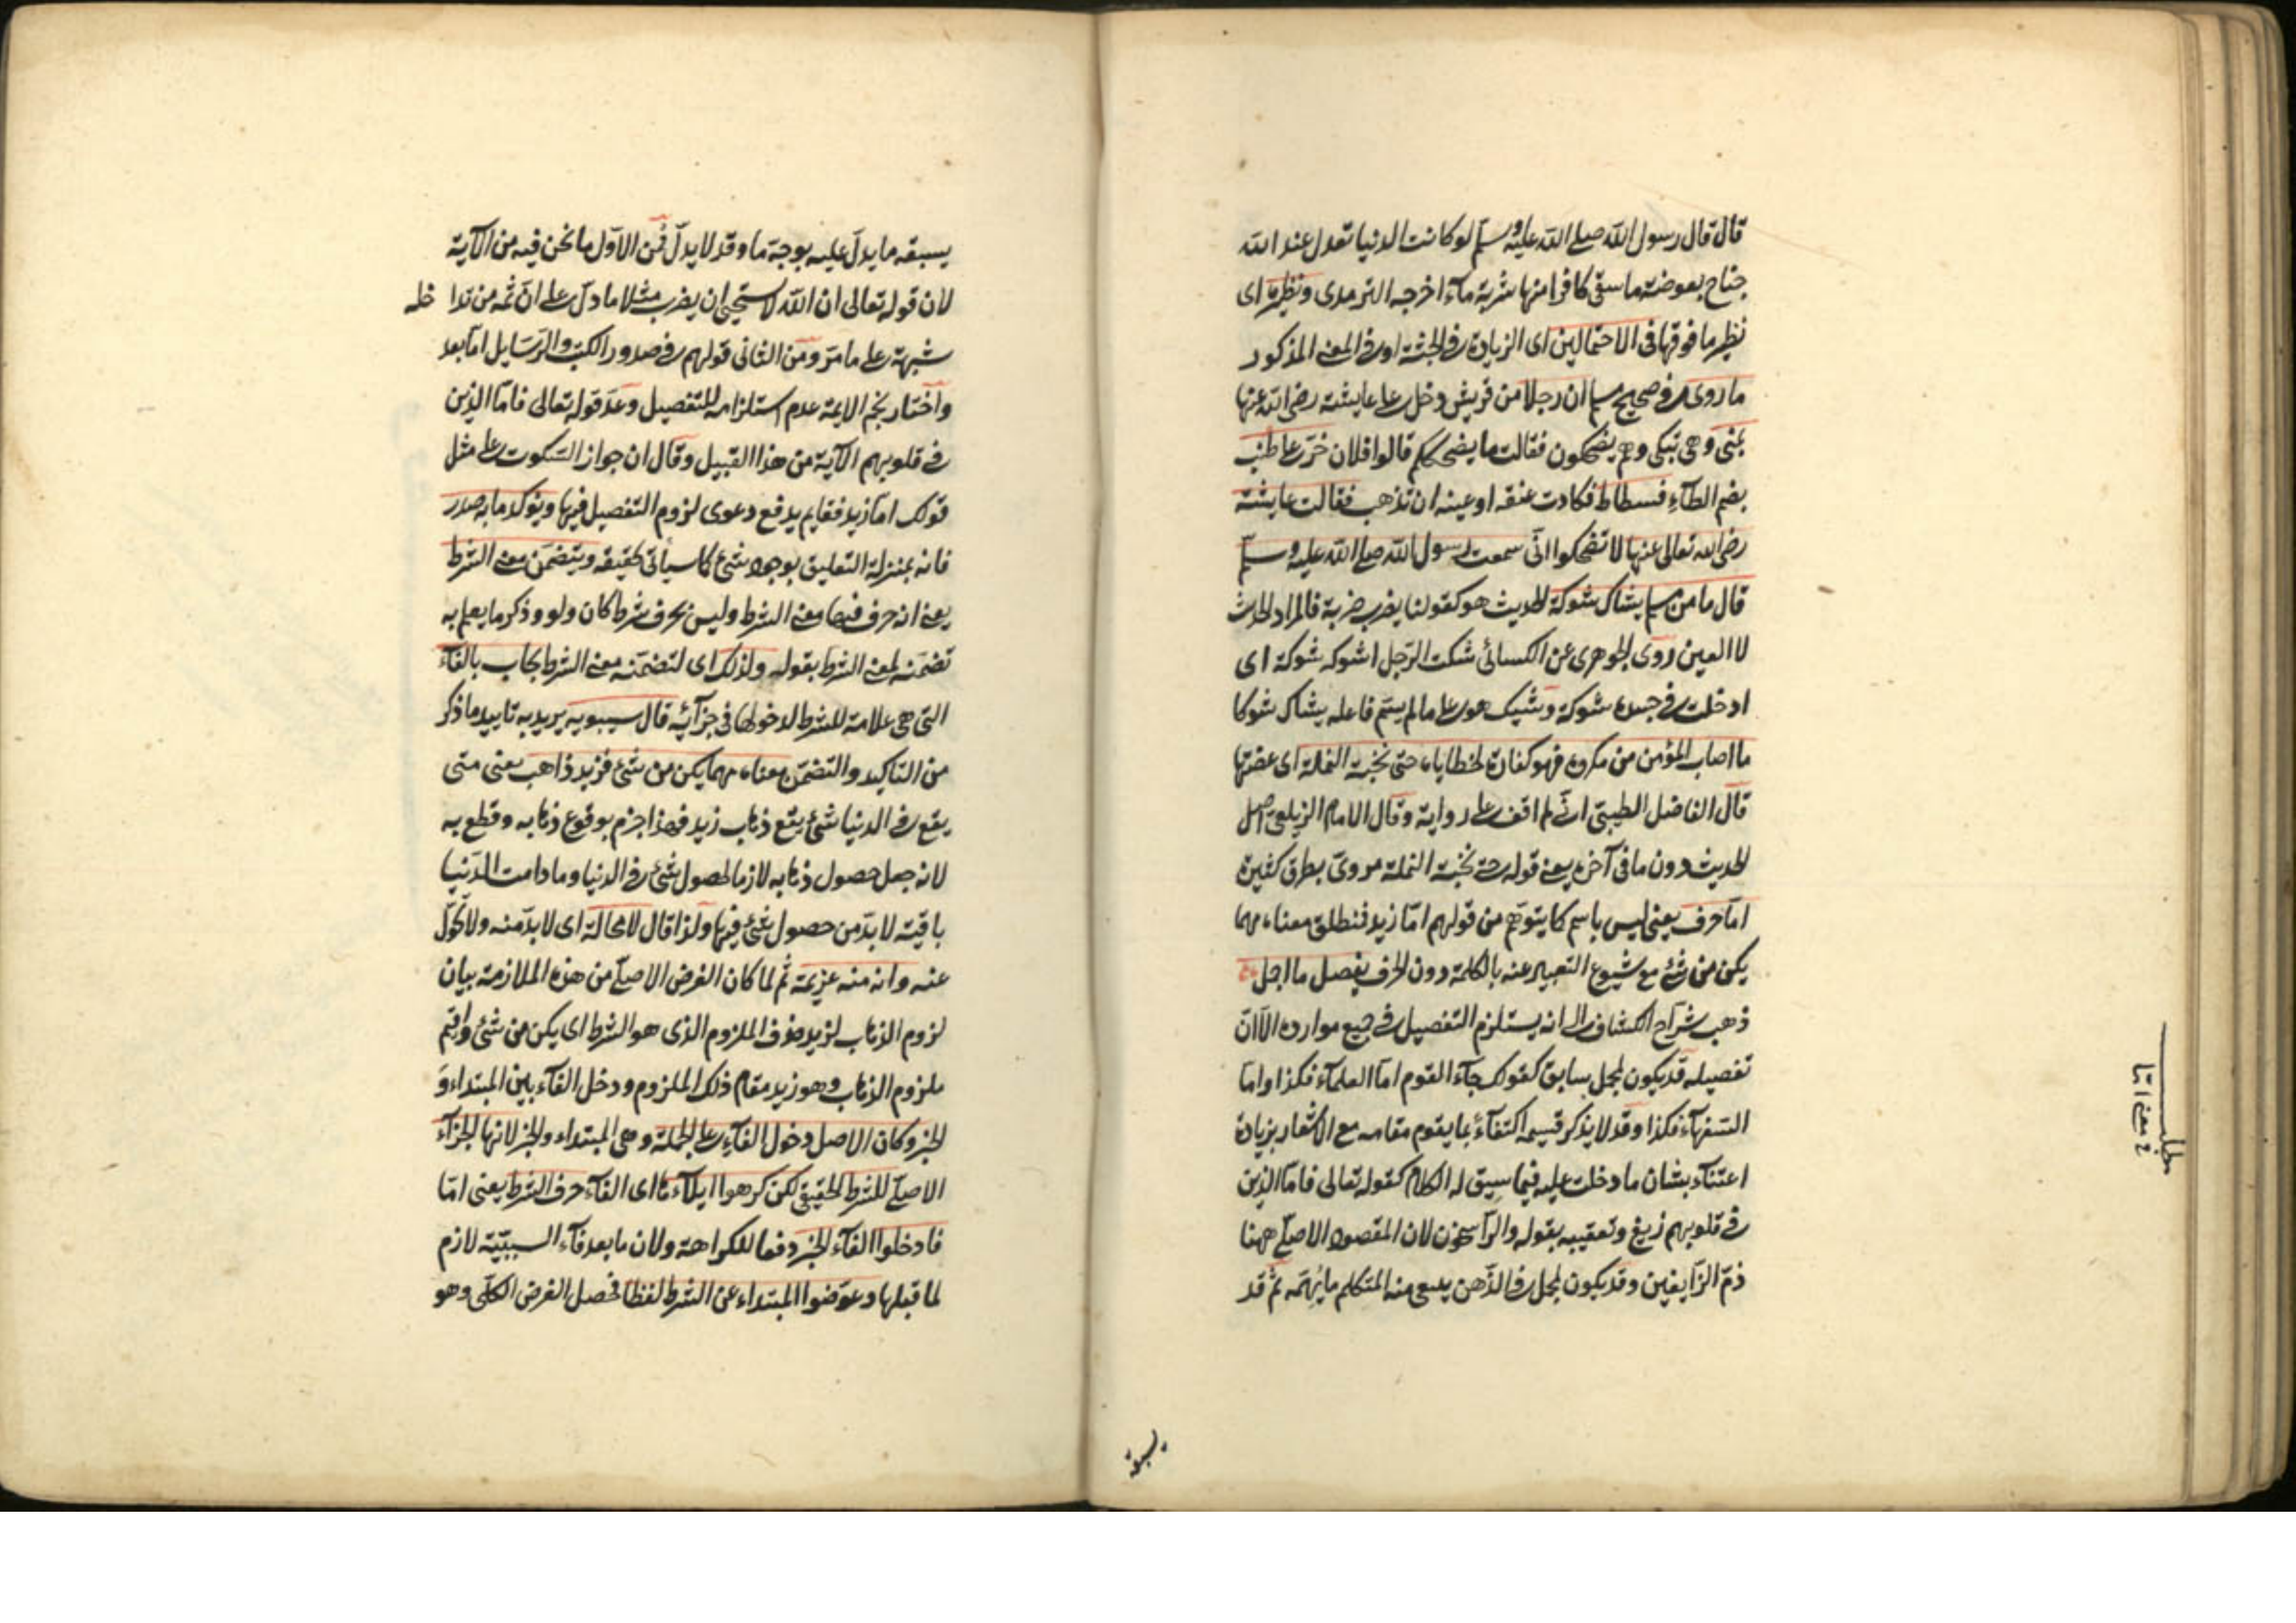 قال قال رسول الله صلى الله عليه وسلم لو كانت الدنيا تعدل عند الله
جناح بعوضة ما سقى كافرا منها شربة ماء اخرجه الترمذى ونظيره اى
نظير ما فوقها فى الاحتمالين اى الزيادة فى الجثة او فى المعنى المذكور
ما روى فى صحيح مسلم ان رجلا من قريش دخل على عايشة رضى الله عنها
بمنى وهى تبكى وهم يضحكون فقالت ما يضحككم قالوا فلان خر على طنب
بضم الطاء فسطاط فكادت عنقه او عينه ان تذهب فقالت عايشة
رضى الله تعالى عنها لا تضحكوا انى سمعت رسول الله صلى الله عليه وسلم
قال ما من مسلم يشاك شوكة الحديث هو كقولنا يضرب ضربة فالمراد الحدث
لا العين روى الجوهرى عن الكسائى شكت الرجل اشوكه شوكة اى
ادخلت فى جسده شوكة وشيك هو على ما لم يسم فاعله يشاك شوكا
ما اصاب المؤمن من مكروه فهو كفارة لخطاياه حتى نخبة النملة اى عضتها
قال الفاضل الطيبى انى لم اقف على رواية وقال الامام الزيلعى اصل
الحديث دون ما فى آخره يعنى قوله حتى نخبة النملة مروى بطرق كثيرة
اما حرف يعنى ليس باسم كما يتوهم من قولهم اما زيد فمنطلق معناه مهما
يكن من شئ مع شيوع التعبير عنه بالكلمة دون الحرف يفصل ما اجمل
ذهب شراح الكشاف الى انه يستلزم التفصيل فى جميع موارده الا ان
تفصيله قد يكون لمجمل سابق كقولك جاء القوم اما العلماء فكذا واما
السفهاء فكذا وقد لا يذكر قسيمه اكتفاء بما يقوم مقامه مع الاشعار بزيادة
اعتناء بشان ما دخلت عليه فيما سيق له الكلام كقوله تعالى فاما الذين
فى قلوبهم زيغ وتعقيبه بقوله والراسخون لان المقصود الاصلى ههنا
ذم الزايغين وقد يكون لمجمل فى الذهن يدعى منه المتكلم ما يهمه ثم قد
يسبقه
مطلب
فى معنى اما
يسبقه ما يدل عليه بوجه ما وقد لا يدل فمن الاول ما نحن فيه من الآية
لان قوله تعالى ان الله لا يستحيى ان يضرب مثلا ما دل على ان ثمه من تداخله
شبهة على ما مر ومن الثانى قولهم فى صدور الكتب والرسايل اما بعد
واختار نجم الايمة عدم استلزامه للتفصيل وعد قوله تعالى فاما الذين
فى قلوبهم الآية من هذا القبيل وقال ان جواز السكوت على مثل
قولك اما زيد فقايم يدفع دعوى لزوم التفصيل فيها ويؤكد ما به صدر
فانه بمنزلة التعليق بوجود شئ كما سيأتى تحقيقه ويتضمن معنى الشرط
يعنى انه حرف فيها معنى الشرط وليس بحرف شرط كان ولو وذكر ما يعلم به
تضمنه لمعنى الشرط بقوله ولذلك اى لتضمنه معنى الشرط يجاب بالفاء
التى هى علامة للشرط لدخولها فى جزائه قال سيبويه يريد به تاييد ما ذكر
من التاكيد والتضمن معناه مهما يكن من شئ فزيد ذاهب يعنى متى
يقع فى الدنيا شئ يقع ذهاب زيد فهذا جزم بوقوع ذهابه وقطع به
لانه جعل حصول ذهابه لازما لحصول شئ فى الدنيا وما دامت الدنيا
باقية لا بد من حصول شئ فيها ولذا قال لا محالة اى لا بد منه ولا تحول
عنه وانه منه عزيمة ثم لما كان الغرض الاصلى من هذه الملازمة بيان
لزوم الذهاب لزيد حذف الملزوم الذى هو الشرط اى يكن من شئ واقيم
ملزوم الذهاب وهو زيد مقام ذلك الملزوم ودخل الفاء بين المبتداء و
الخبر وكان الاصل دخول الفاء على الجملة وهى المبتداء والخبر لانها الجزاء
الاصلى للشرط الحقيقى لكن كرهوا ايلاءها اى الفاء حرف الشرط يعنى اما
فادخلوا الفاء الخبر دفعا للكراهة ولان ما بعد فاء السببية لازم
لما قبلها وعوضوا المبتداء عن الشرط لفظا فحصل الغرض الكلى وهو